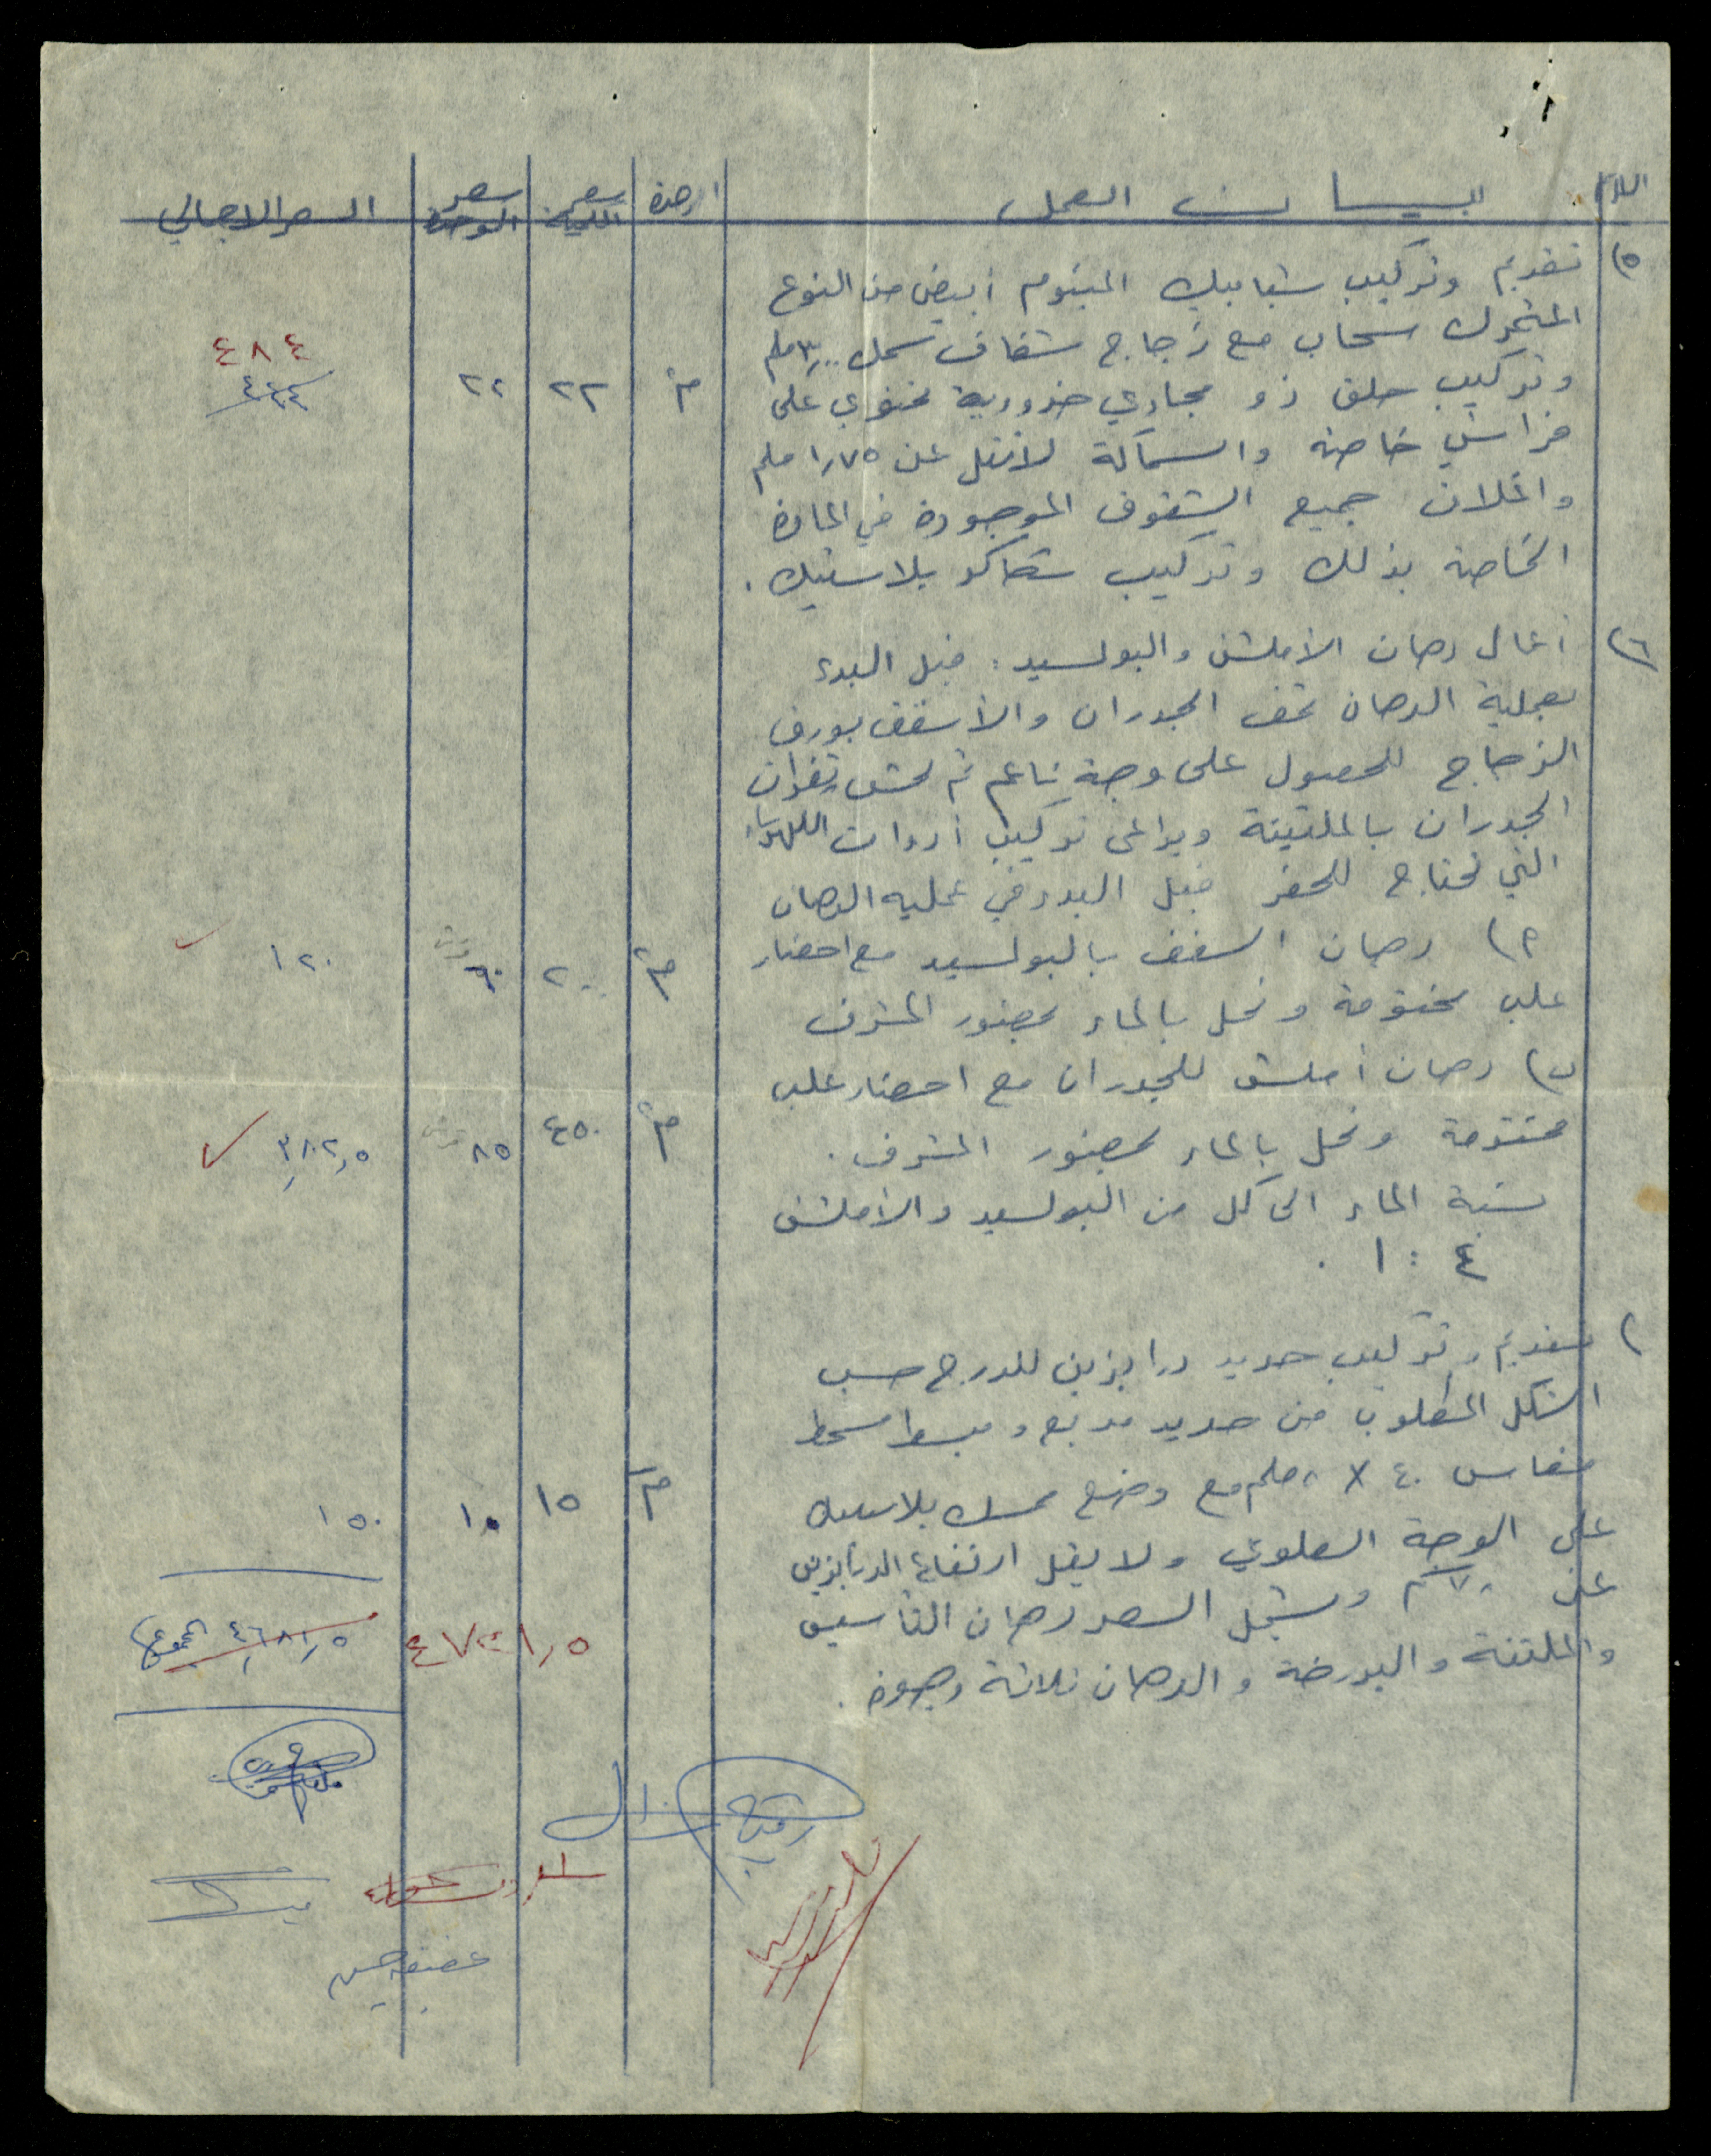 بيان العمل
الوحدة
سعر الكمية
سعر الوحدة
السعر الاجمالي
٥) تقديم وتركيب شبابيك المنيوم أبيض من النوع
المتحرك سحاب مع زجاج شفاف سمك ملم
وتركيب حلق ذو مجاري ضرورية تحتوي على
فراشي خاصة والسماكة لا تقل عن ١٫٧٥ ملم
واغلاق جميع الشقوق الموجودة في المادة
الخاصة بذلك وتركيب بلاستيك .
م٢ ٢٢ ٢٢ ٤٨٤
٦) أعمال دهان الأملشن والبولسيد : قبل البدء
بعملية الدهان تحف الجدران والأسقف بورق
الزجاج للحصول على وجه ناعم ثم
الجدران بالملتينة ويراعى تركيب أدوات الكهرباء
التي تحتاج للحفر قبل البدء في عملية الدهان
٢) دهان السقف بالبولسيد مع احضار
علب مختومة وتحل بالماء بحضور المشرف
م٢ ٢٠٠ ٦٠ قرش ١٢٠
ب) دهان أملشن للجدران مع احضار علب
مختومة وتحل بالماء بحضور المشرف .
م٢ ٤٥٠ ٨٥ قرش ٣٨٢٫٥
نسبة الماء الى كل من البولسيد والأملشن
٤ : ١ .
) تقديم وتركيب حديد درابزين للدرج حسب
الشكل المطلوب من حديد مربع ومبسط
مقاس ٤٠ × ملم مع وضع بلاستيك
م ١٥ ١٠ ١٥٠
على الوجه العلوي ولا يقل ارتفاع الدرابزين
عن ٧٠ ويشمل السعر دهان التأسيس
والملتنة والبرضة والدهان ثلاثة وجوه .
٤٦٨١٫٥ المجموع